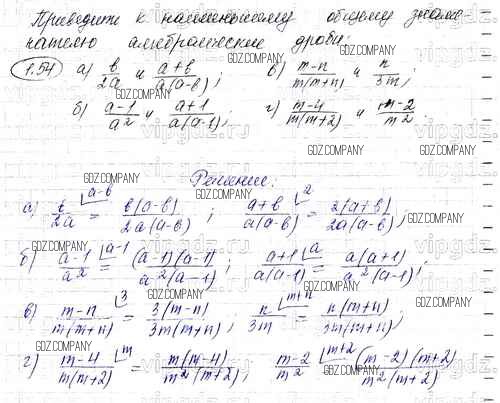 Приведите к наименьшему общему знаме-
нателю алгебраические дроби:
1.54 а) b/2a и (a+b)/(a(a-b)); в) (m-n)/(m(m+n)) и n/3m;
б) (a-1)/a² и (a+1)/(a(a-1)); г) (m-4)/(m(m+2)) и (m-2)/m²
Решение:
а) b/2a ⌊a-b = b(a-b)/(2a(a-b)); (a+b)/(a(a-b)) ⌊2 = 2(a+b)/(2a(a-b));
б) (a-1)/a² ⌊a-1 = (a-1)(a-1)/(a²(a-1)); (a+1)/(a(a-1)) ⌊a = a(a+1)/(a²(a-1));
в) (m-n)/(m(m+n)) ⌊3 = 3(m-n)/(3m(m+n)); n/3m ⌊m+n = n(m+n)/(3m(m+n));
г) (m-4)/(m(m+2)) ⌊m = m(m-4)/(m²(m+2)); (m-2)/m² ⌊m+2 = (m-2)(m+2)/(m²(m+2))
GDZ.COMPANY
vipgdz.ru